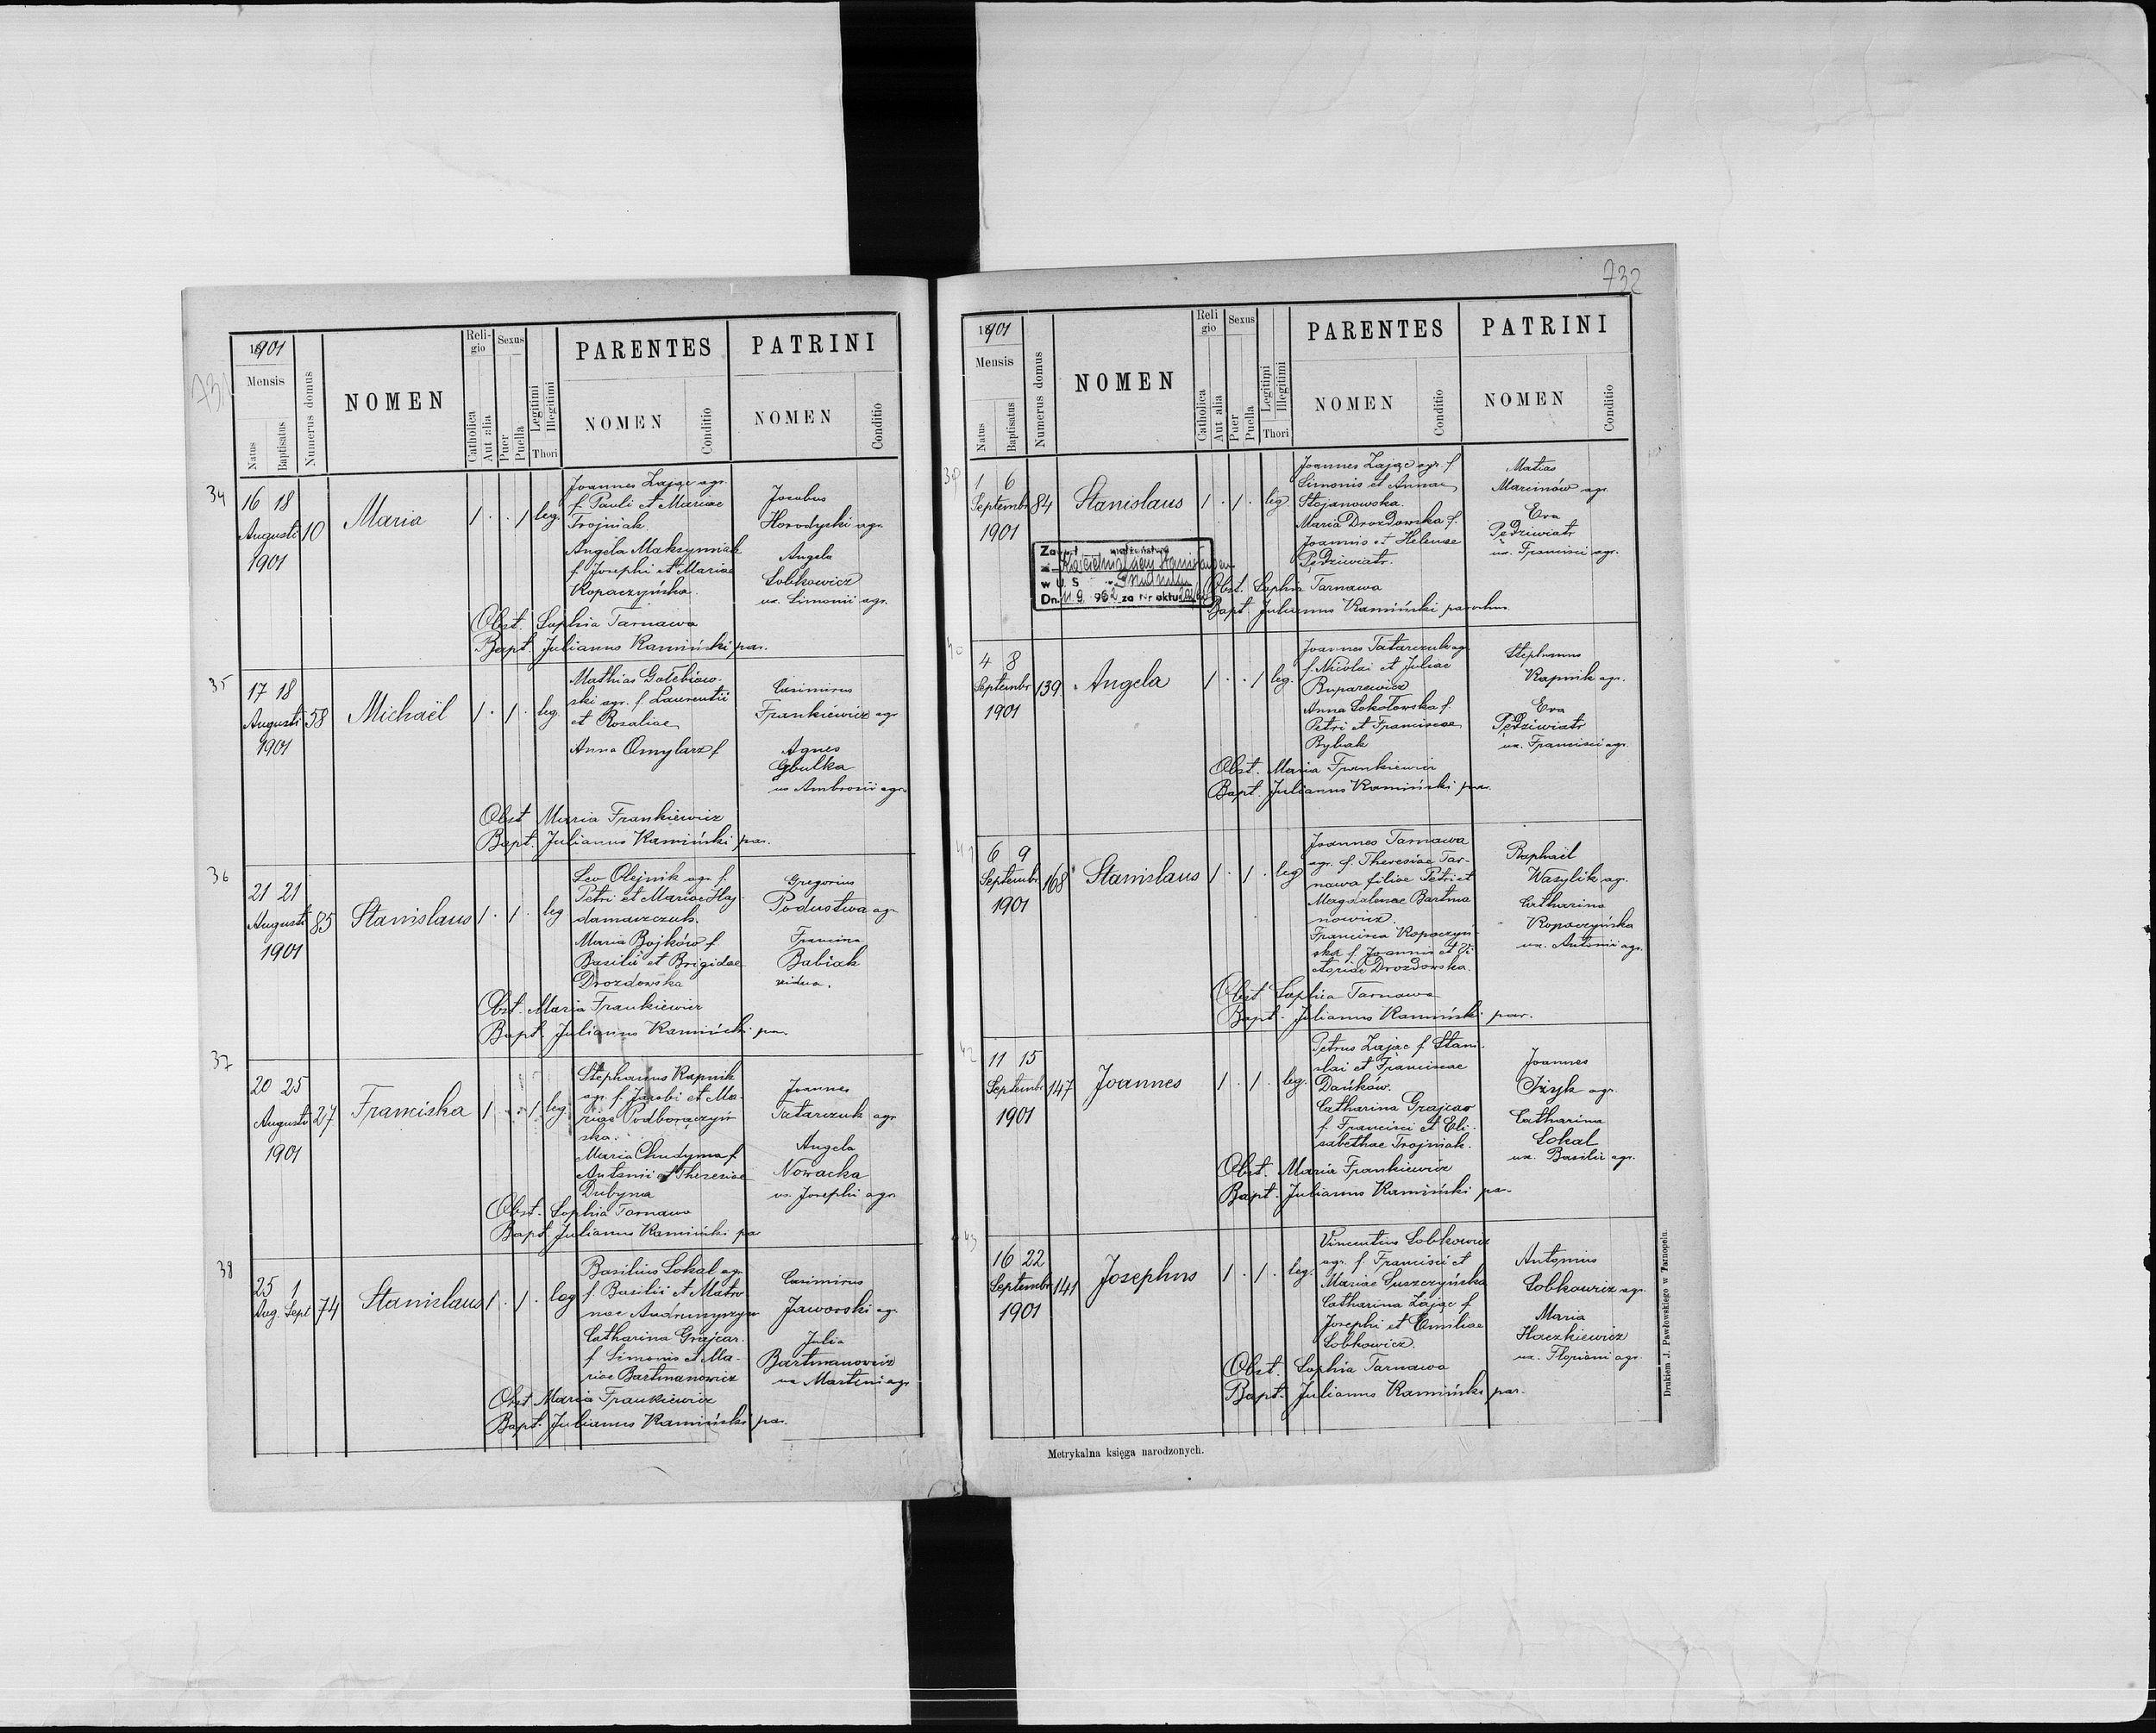 731
1901
Mensis
Natus
Baptisatus
Numerus domus
NOMEN
Reli-
gio
Catholica
Aut alia
Sexus
Puer
Puella
Legitimi
Illegitimi
Thori
PARENTES
NOMEN
Conditio
PATRINI
NOMEN
Conditio
34
16 18
Augusti
1901
10
Maria
1 . . 1 leg.
Joannes Zając agr.
f. Pauli et Mariae
Trojniak.
Angela Maksymniak
f. Josephi et Mariae
Kopaczyńska.
Jacobus
Horodyski agr.
Angela
Sobkowicz
ux. Simonis agr.
Obst. Sophia Tarnawa
Bapt. Julianus Kamiński par.
35
17 18
Augusti
1901
58
Michaël
1 . 1 . leg.
Mathias Gołębiow-
ski agr. f. Laurentii
et Rosaliae
Anna Omylarz f
Casimirus
Frankiewicz agr
Agnes
Gbulka
ux Ambrosii agr.
Obst Maria Frankiewicz
Bapt. Julianus Kamiński par.
36
21 21
Augusti
1901
85
Stanislaus
1 . 1 . leg
Leo Olejnik agr. f.
Petri et Mariae Haj-
damaszczuk.
Maria Bojków f
Basilii et Brigidae
Drozdowska
Gregorius
Podustwa agr
Francisca
Babiak
vidua.
Obst. Maria Frankiewicz
Bapt. Julianus Kamiński par.
37
20 25
Augusti
1901
27
Franciska
1 . . 1 leg
Stephanus Kapnik
agr. f. Jacobi et Ma-
riae Podhoraczyń
ska.
Maria Chudyma f
Antonii et Theresiae
Dubyna
Joannes
Tatarczuk agr
Angela
Nowacka
ux. Josephi agr
Obst. Sophia Tarnawa
Bapt. Julianus Kamiński pa
38
25 1
Aug. Sept
74
Stanislaus
1 . 1 . leg
Basilius Sokal agr
f Basilii et Matro
nae
Catharina Grajcar.
f Simonis et Ma-
riae Bartmanowicz
Casimirus
Jaworski agr
Julia
Bartmanowicz
ux Martini agr
Obst Maria Frankiewicz
Bapt. Julianus Kamiński par.
732
1901
Mensis
Natus
Baptisatus
Numerus domus
NOMEN
Reli
gio
Catholica
Aut alia
Sexus
Puer
Puella
Legitimi
Illegitimi
Thori
PARENTES
NOMEN
Conditio
PATRINI
NOMEN
Conditio
39
1 6
Septembr
1901
84
Stanislaus
1 . 1 . leg
Joannes Zając agr. f
Simonis et Annae
Stojanowska.
Maria Drozdowska f.
Joannis et Helenae
Pędziwiatr.
Matias
Marcinów agr.
Eva
Pędziwiatr
ux. Francisci agr.
małżeństwo
w U S
Dn. 11.9 962 za Nr aktu
Obst. Sophia Tarnawa
Bapt Julianus Kamiński parochus.
40
4 8
Septembr
1901
139
Angela
1 . . 1 leg.
Joannes Tatarczuk agr
f. Nicolai et Juliae
Anna Sokołowska f.
Petri et Franciscae
Rybak
Stephanus
Kapnik agr.
Eva
Pędziwiatr
ux. Francisci agr.
Obst. Maria Frankiewicz
Bapt. Julianus Kamiński par.
41
6 9
Septembr
1901
168
Stanislaus
1 . 1 . leg
Joannes Tarnawa
agr. f. Theresiae Tar-
nawa filiae Petri et
Magdalenae Bartma
nowicz.
Francisca Kopaczyń
ska f. Joannis et Vi
ctoriae Drozdowska.
Raphaël
Wasylik agr.
Catharina
Kopaczyńska
ux. Antonii agr.
Obst Sophia Tarnawa
Bapt. Julianus Kamiński par.
42
11 15
Septembr
1901
147
Joannes
1 . 1 . leg.
Petrus Zając f Stani-
slai et Franciscae
Dańków.
Catharina Grajcar
f. Francisci et Eli-
sabethae Trojniak.
Joannes
Iżyk agr.
Catharina
Sokal
ux. Basilii agr.
Obst. Maria Frankiewicz
Bapt. Julianus Kamiński par
43
16 22
Septembr
1901
141
Josephus
1 . 1 . leg.
Vincentius Sobkowicz
agr. f. Francisci et
Mariae Suszczyńska
Catharina Zając f
Josephi et Emiliae
Sobkowicz.
Antonius
Sobkowicz agr.
Maria
Haczkiewicz
ux. Floriani agr.
Obst. Sophia Tarnawa
Bapt. Julianus Kamiński par.
Metrykalna księga narodzonych.
Drukiem J. Pawłowskiego w Tarnopolu.